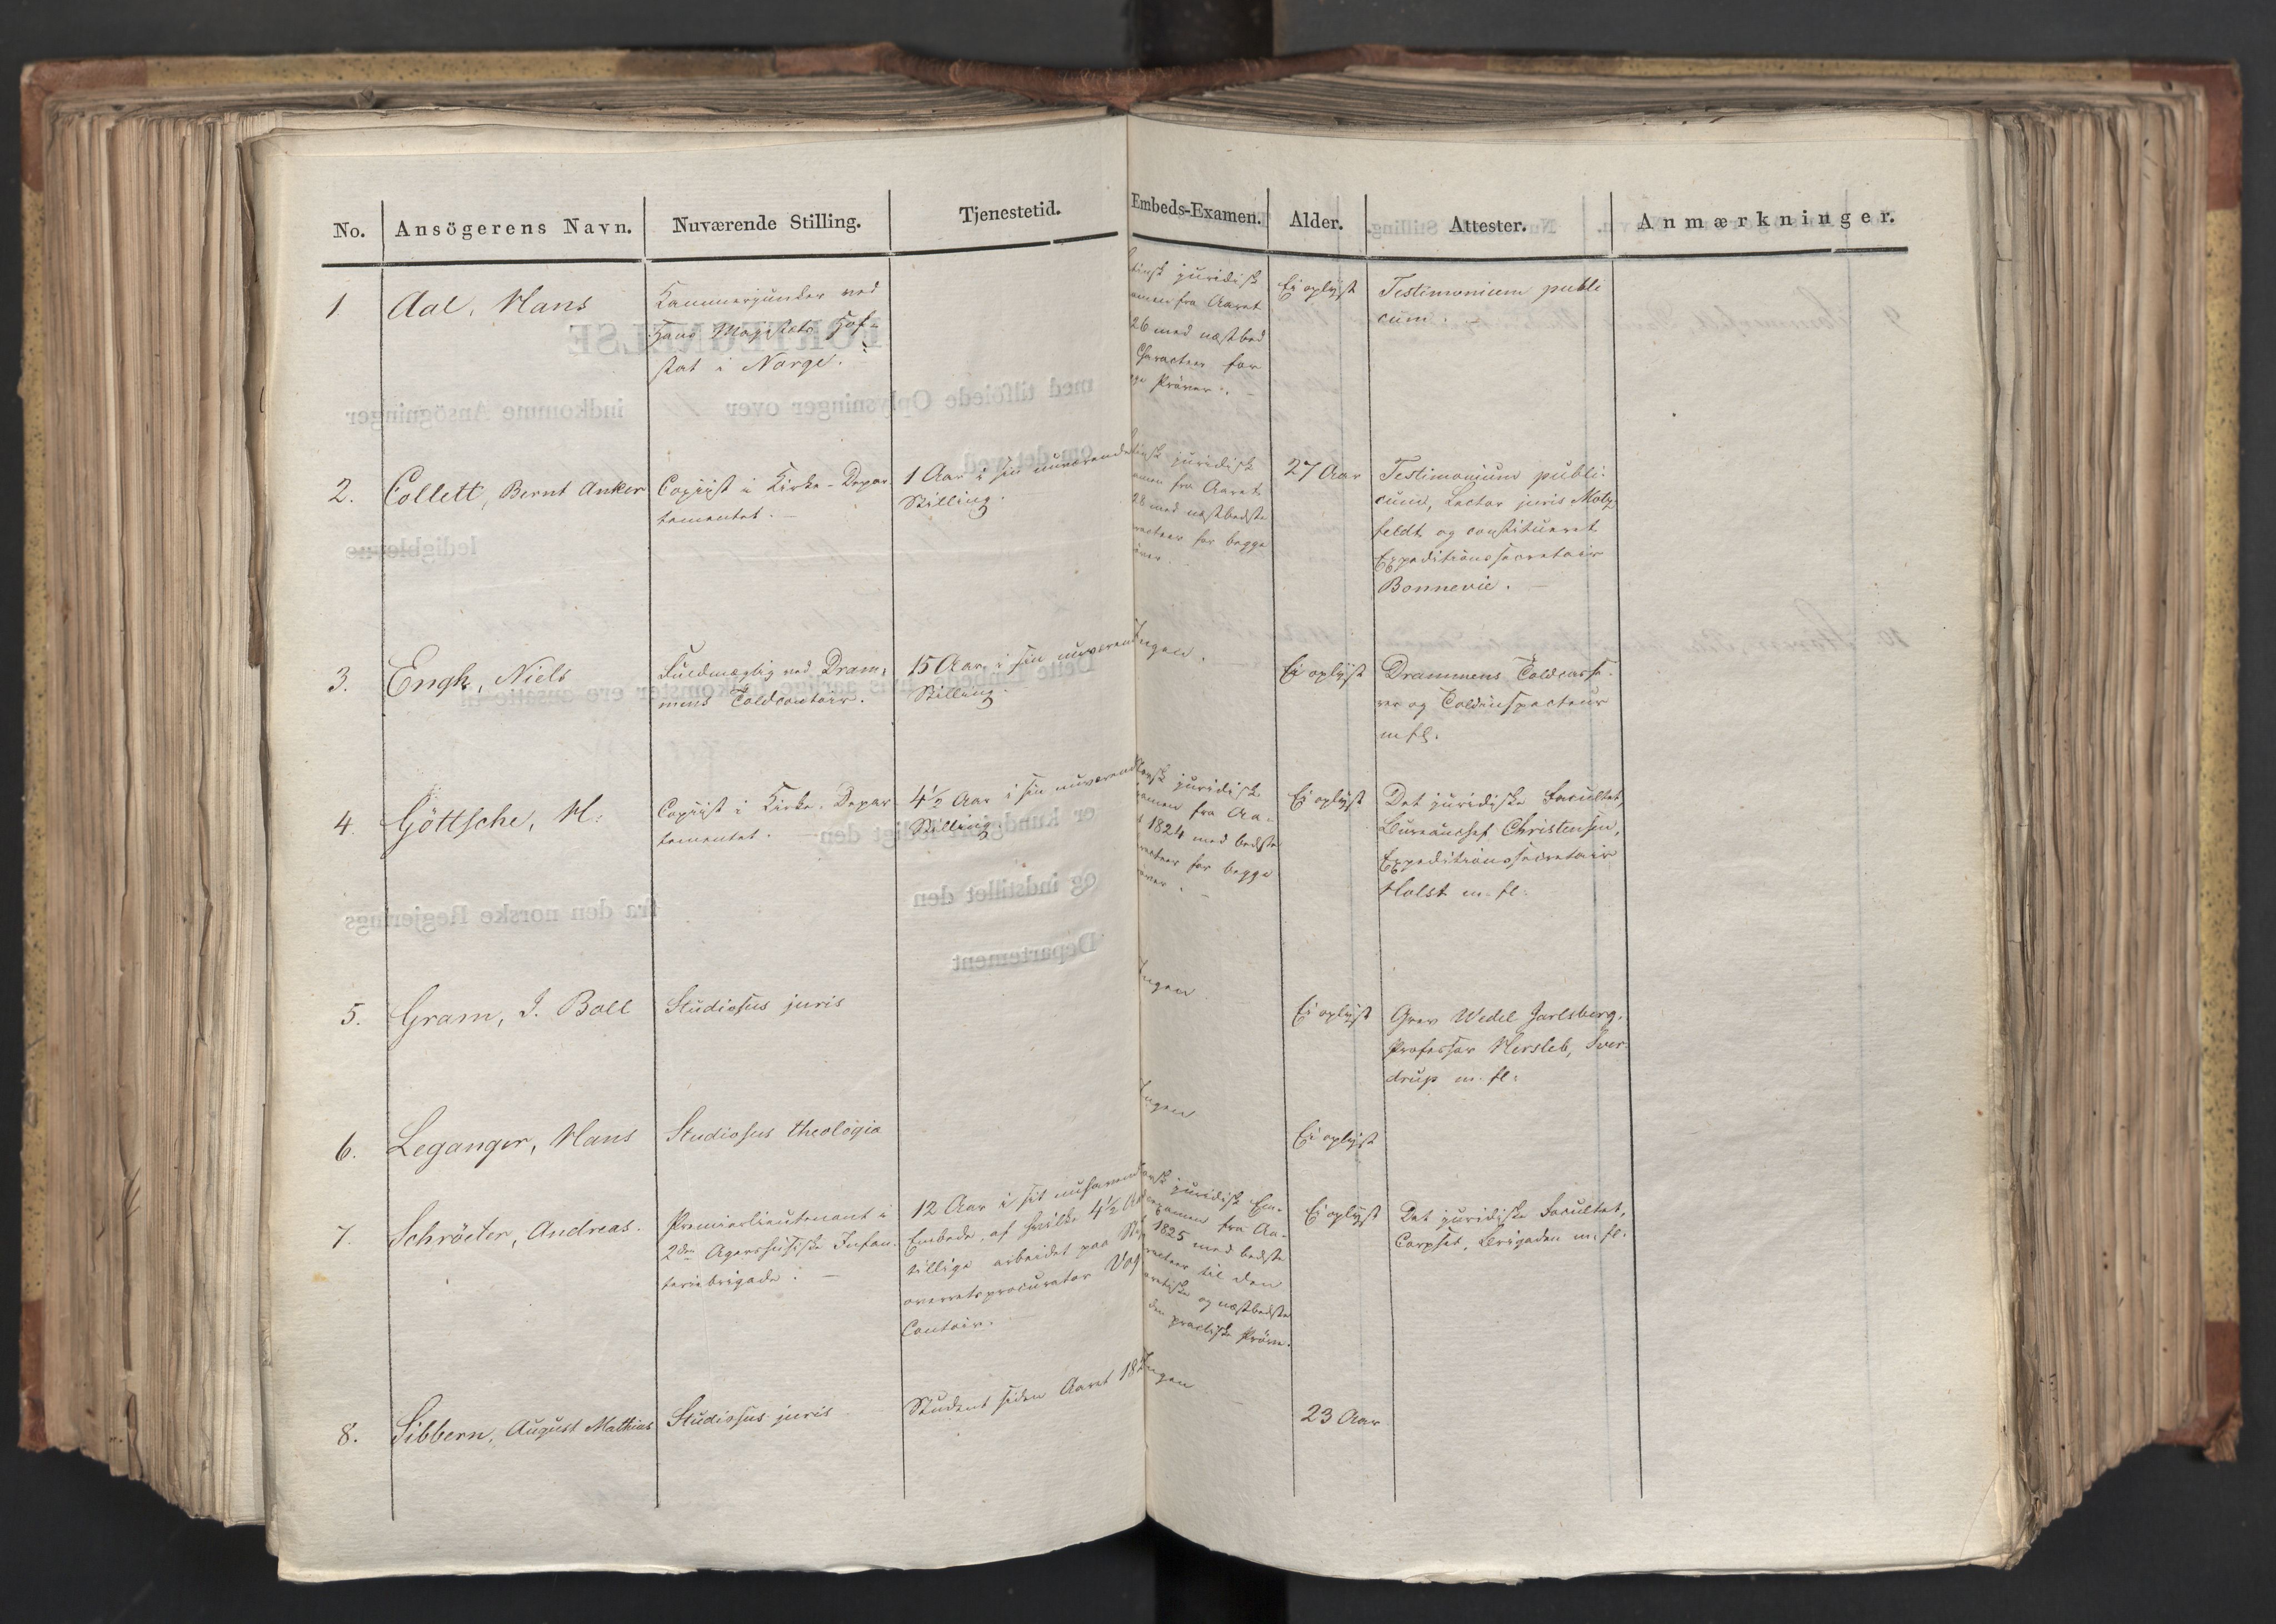 No. Ansögerens Navn. Nuværende Stilling. Tjenestetid. Embeds-Examen. Alder. Attester. Anmærkninger.
1. Aal, Hans
Kammerjunker ved
Hans Majestæts Hof-
stat i Norge.
juridisk
fra Aaret
26 med næstbed
Characteer for
Prøver.
Ei oplyst
Testimonium publi
cum.
2. Collett, Bernt Anker
Copiist i Kirke-Depar
tementet.
1 Aar i sin nuværende
Stilling.
juridisk
fra Aaret
28 med næstbedste
for begge
27 Aar
Testimonium publi-
cum, Lector juris Motz
feldt og constitueret
Expeditionssecretair
Bonnevie.
3. Engh, Niels
Fuldmægtig ved Dram-
mens Toldcontoir.
15 Aar i sin nuværen
Stilling.
Ingen.
Ei oplyst
Drammens Toldcasse-
rer og Toldinspecteur
m fl.
4. Göttsche, M.
Copiist i Kirke-Depar
tementet.
4½ Aar i sin nuværend
Stilling
juridisk
fra Aa-
1824 med bedste
for begge
Ei oplyst
Det juridiske Facultet,
Bureauchef Christensen,
Expeditionssecretair
Holst m. fl.
5. Gram, J. Boll
Studiosus juris
Ingen
Ei oplyst
Grev Wedel Jarlsberg,
Professor Hersleb, Sver-
drup m. fl.
6. Leganger, Hans
Studiosus theologia
Ingen
Ei oplyst
7. Schröeter, Andreas.
Premierlieutenant i
2den Agershusiske Infan-
teriebrigade.
12 Aar i sit nuhavend
Embede, af hvilke 4½ Aar
tillige arbeidet paa
overretsprocurator
Contoir.
juridisk Em-
examen fra Aa-
1825 med bedste
til den
og næstbedste
den practiske Prøve.
Ei oplyst
Det juridiske Facultet,
Corpset, Brigaden m. fl.
8. Sibbern, August Mathias
Studiosus juris
Student siden Aaret 18
Ingen
23 Aar